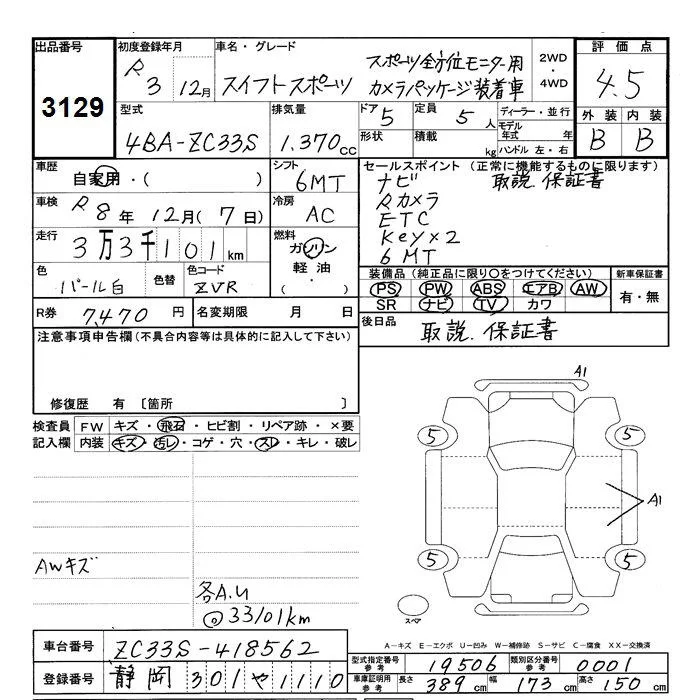 出品番号 3129
初度登録年月 R 3 12月
車名・グレード スイフトスポーツ
スポーツ全方位モニター用
カメラパッケージ装着車
2WD・4WD
評価点 4.5
外装 内装
B B
型式 4BA-ZC33S
排気量 1.370cc
ドア 5
形状
定員 5人
積載 kg
ディーラー・並行
モデル年式 年
ハンドル 左・右
車歴 自家用・( )
シフト 6MT
車検 R 8年12月(7日)
冷房 AC
走行 3万3千101km
燃料 ガソリン
軽油・
( )
色 パール白
色替
色コード ZVR
R券 7,470円
名変期限 月 日
セールスポイント(正常に機能するものに限ります)
ナビ 取説 保証書
Rカメラ
ETC
Key×2
6MT
装備品(純正品に限り○をつけてください)
PS PW ABS エアB AW
SR ナビ TV カワ
新車保証書
有・無
後日品 取説.保証書
注意事項申告欄(不具合内容等は具体的に記入して下さい)
修復歴 有〔箇所 〕
検査員記入欄
FW キズ・飛石・ヒビ割・リペア跡・×要
内装 キズ・汚レ・コゲ・穴・スレ・キレ・破レ
AWキズ
各A.U
◎33101km
A1
5 5
A1
5 5
スペア
A-キズ E-エクボ U-凹み W-補修跡 S-サビ C-腐食 XX-交換済
車台番号 ZC33S-418562
登録番号 静岡 301 や 1110
型式指定番号 参考 19506
類別区分番号 参考 0001
車庫証明用 参考 長さ 389cm 幅 173cm 高さ 150cm